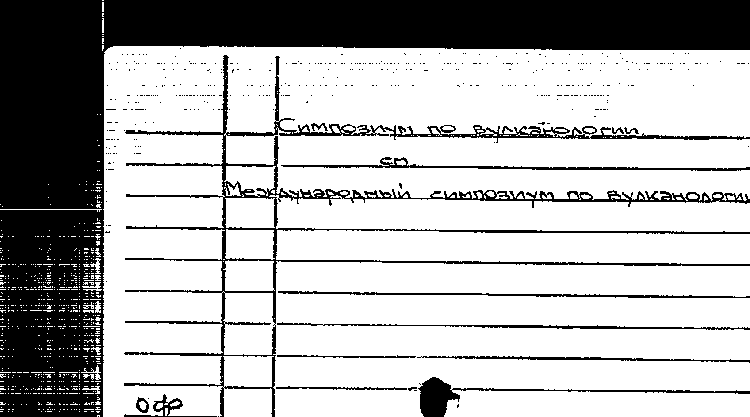 Симпозиум по вулканологии
см.
Международный симпозиум по вулканологии
офр